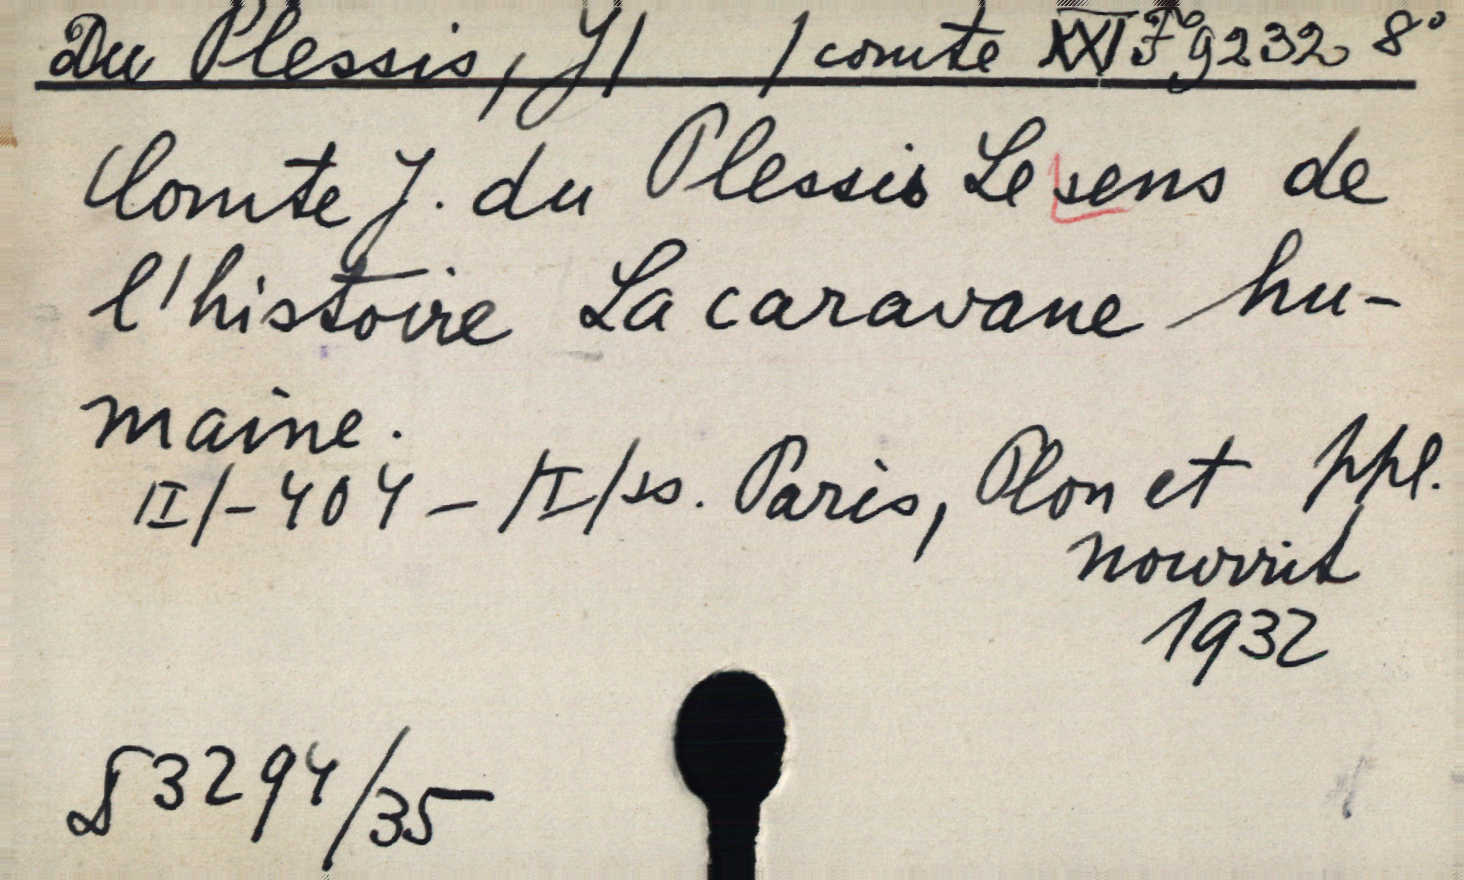 Du Plessis, J/ /comte XXI Fg 9232 8°
Comte J. du Plessis Le sens de
l'histoire La caravane hu-
maine.
/II/-404-/I/ss. Paris, Plon et ppl.
nourrit
1932
3294/35